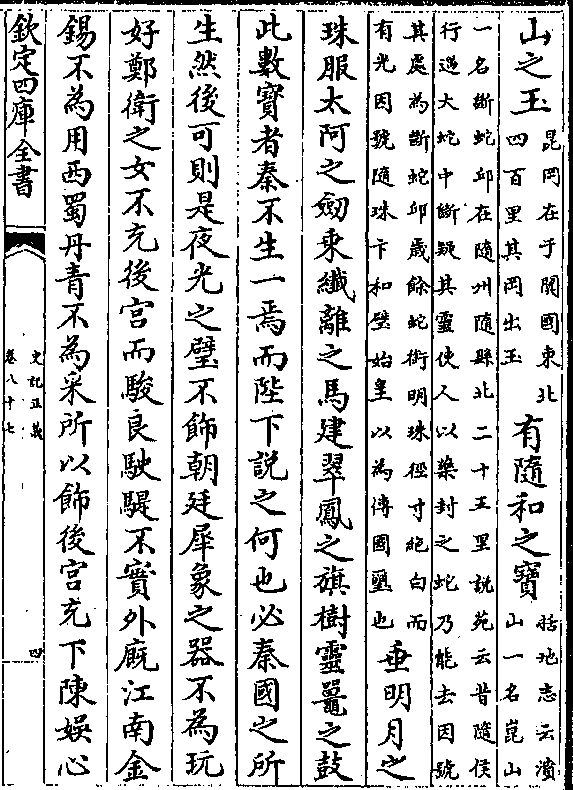 山之玉
昆岡在于闐國東北
四百里其岡出玉
有隨和之寶
括地志云濆
山一名崑山
一名斷蛇邱在隨州隨縣北二十五里說苑云昔隨侯
行遇大蛇中斷疑其靈使人以藥封之蛇乃能去因號
其處為斷蛇邱歲餘蛇銜明珠徑寸絶白而
有光因號隨珠卞和璧始皇以為傳國璽也
垂明月之
珠服太阿之劒乘纖離之馬建翠鳳之旗樹靈鼉之鼓
此數寶者秦不生一焉而陛下説之何也必秦國之所
生然後可則是夜光之璧不飾朝廷犀象之器不為玩
好鄭衛之女不充後宫而駿良駃騠不實外廐江南金
錫不為用西蜀丹青不為采所以飾後宫充下陳娛心
欽定四庫全書
史記正義
卷八十七
四